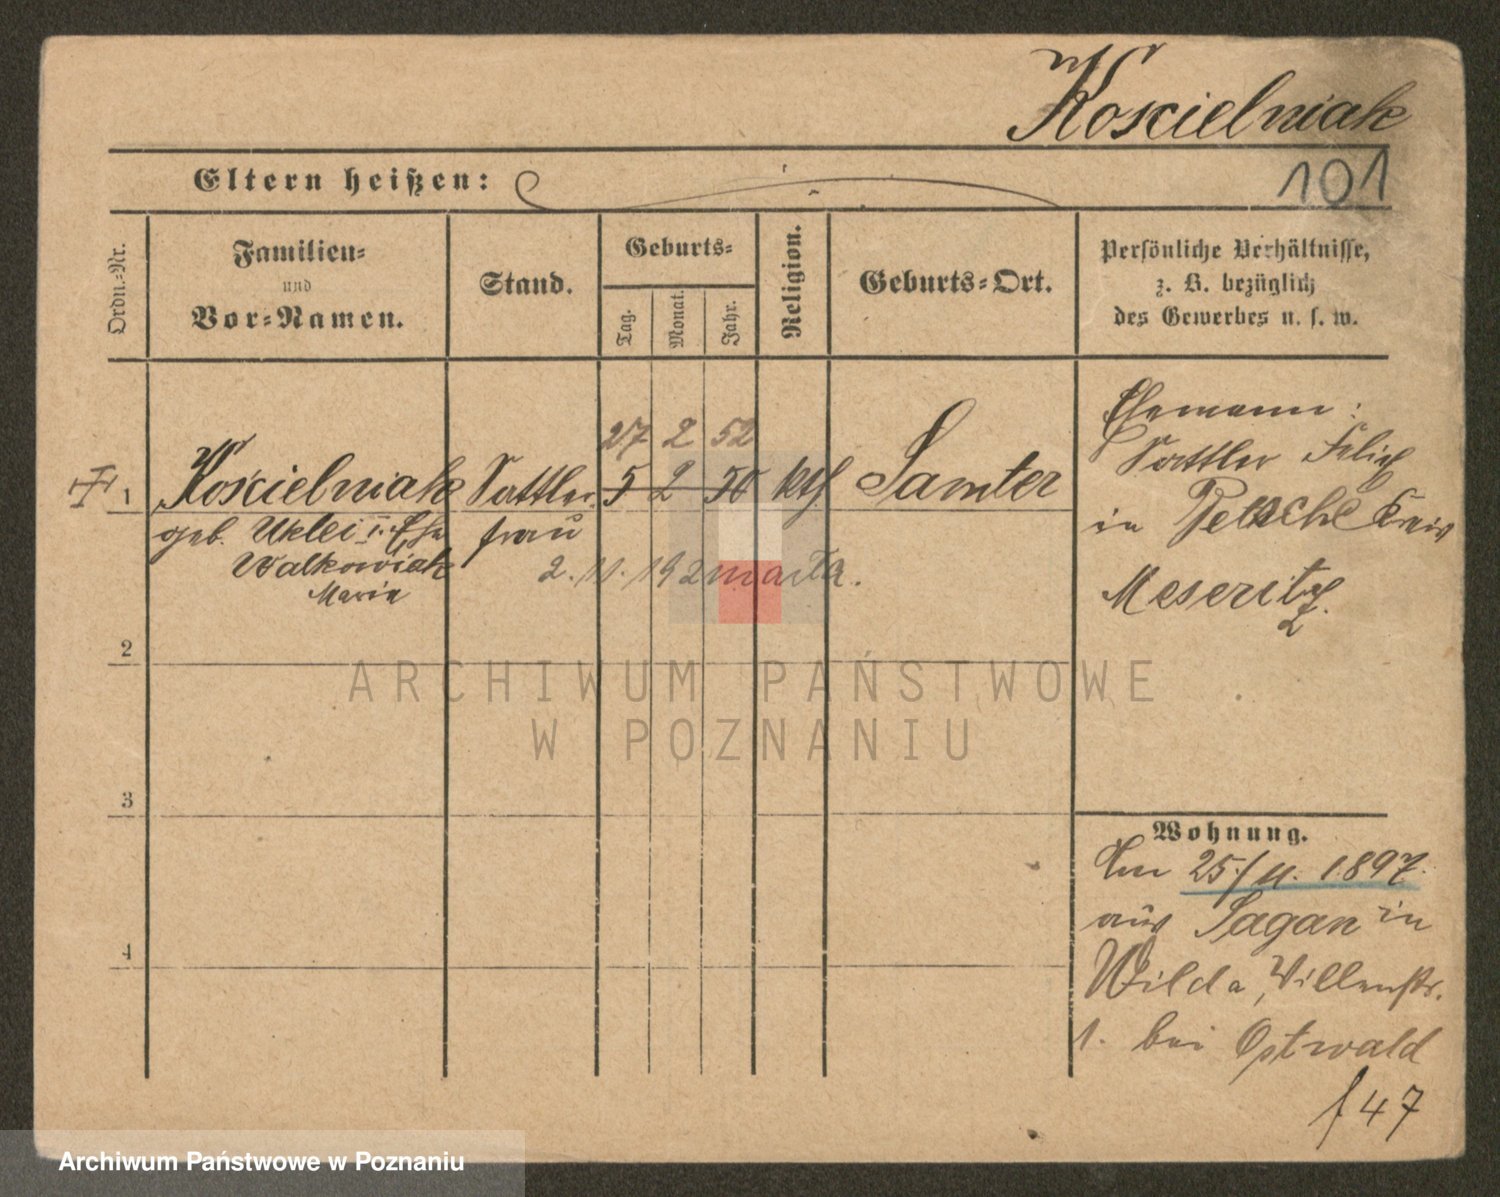 Koscielniak
101
Eltern heißen:
Ordn.-Nr.
Familien-
und
Vor-Namen.
Stand.
Geburts-
Tag.
Monat.
Jahr.
Religion.
Geburts-Ort.
Persönliche Verhältnisse,
z. B. bezüglich
des Gewerbes u. s. w.
27 2 52
1 Koscielniak Sattler- 5 2 50 kth Samter
geb. Uklei I. Ehe frau
Walkowiak
Maria
2. 11. 192 marła.
Ehemann:
Sattler Felix
in Betsche Kreis
Meseritz.
2
3
4
Wohnung.
Am 25./11. 1897.
aus Sagan in
Wilda, Villenstr.
1. bei Ostwald
f 47
ARCHIWUM PAŃSTWOWE
W POZNANIU
Archiwum Państwowe w Poznaniu